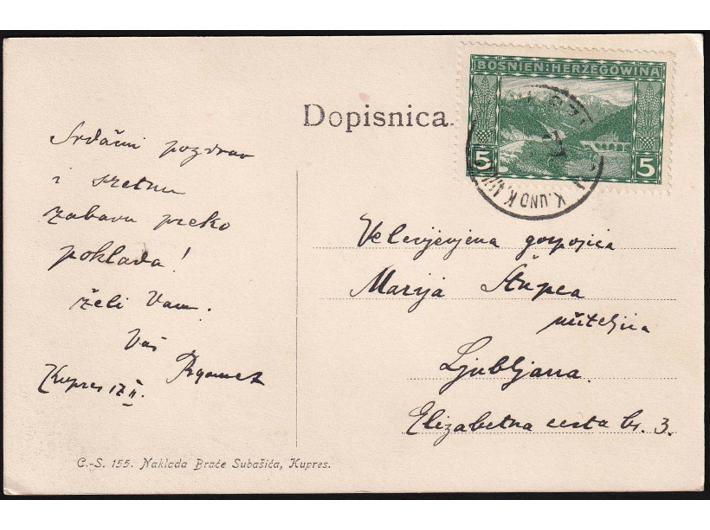 BOSNIEN-HERZEGOWINA
5 5
K. UND K.
Dopisnica.
Srdačni pozdrav
i sretnu
zabavu preko
poklada!
želi Vam.
Vaš
Kupres 17/II.
Velecijenjena gospojica
Marija Štupca
učiteljica
Ljubljana.
Elizabetna cesta br. 3.
C.-S. 155. Naklada Braće Subašića, Kupres.